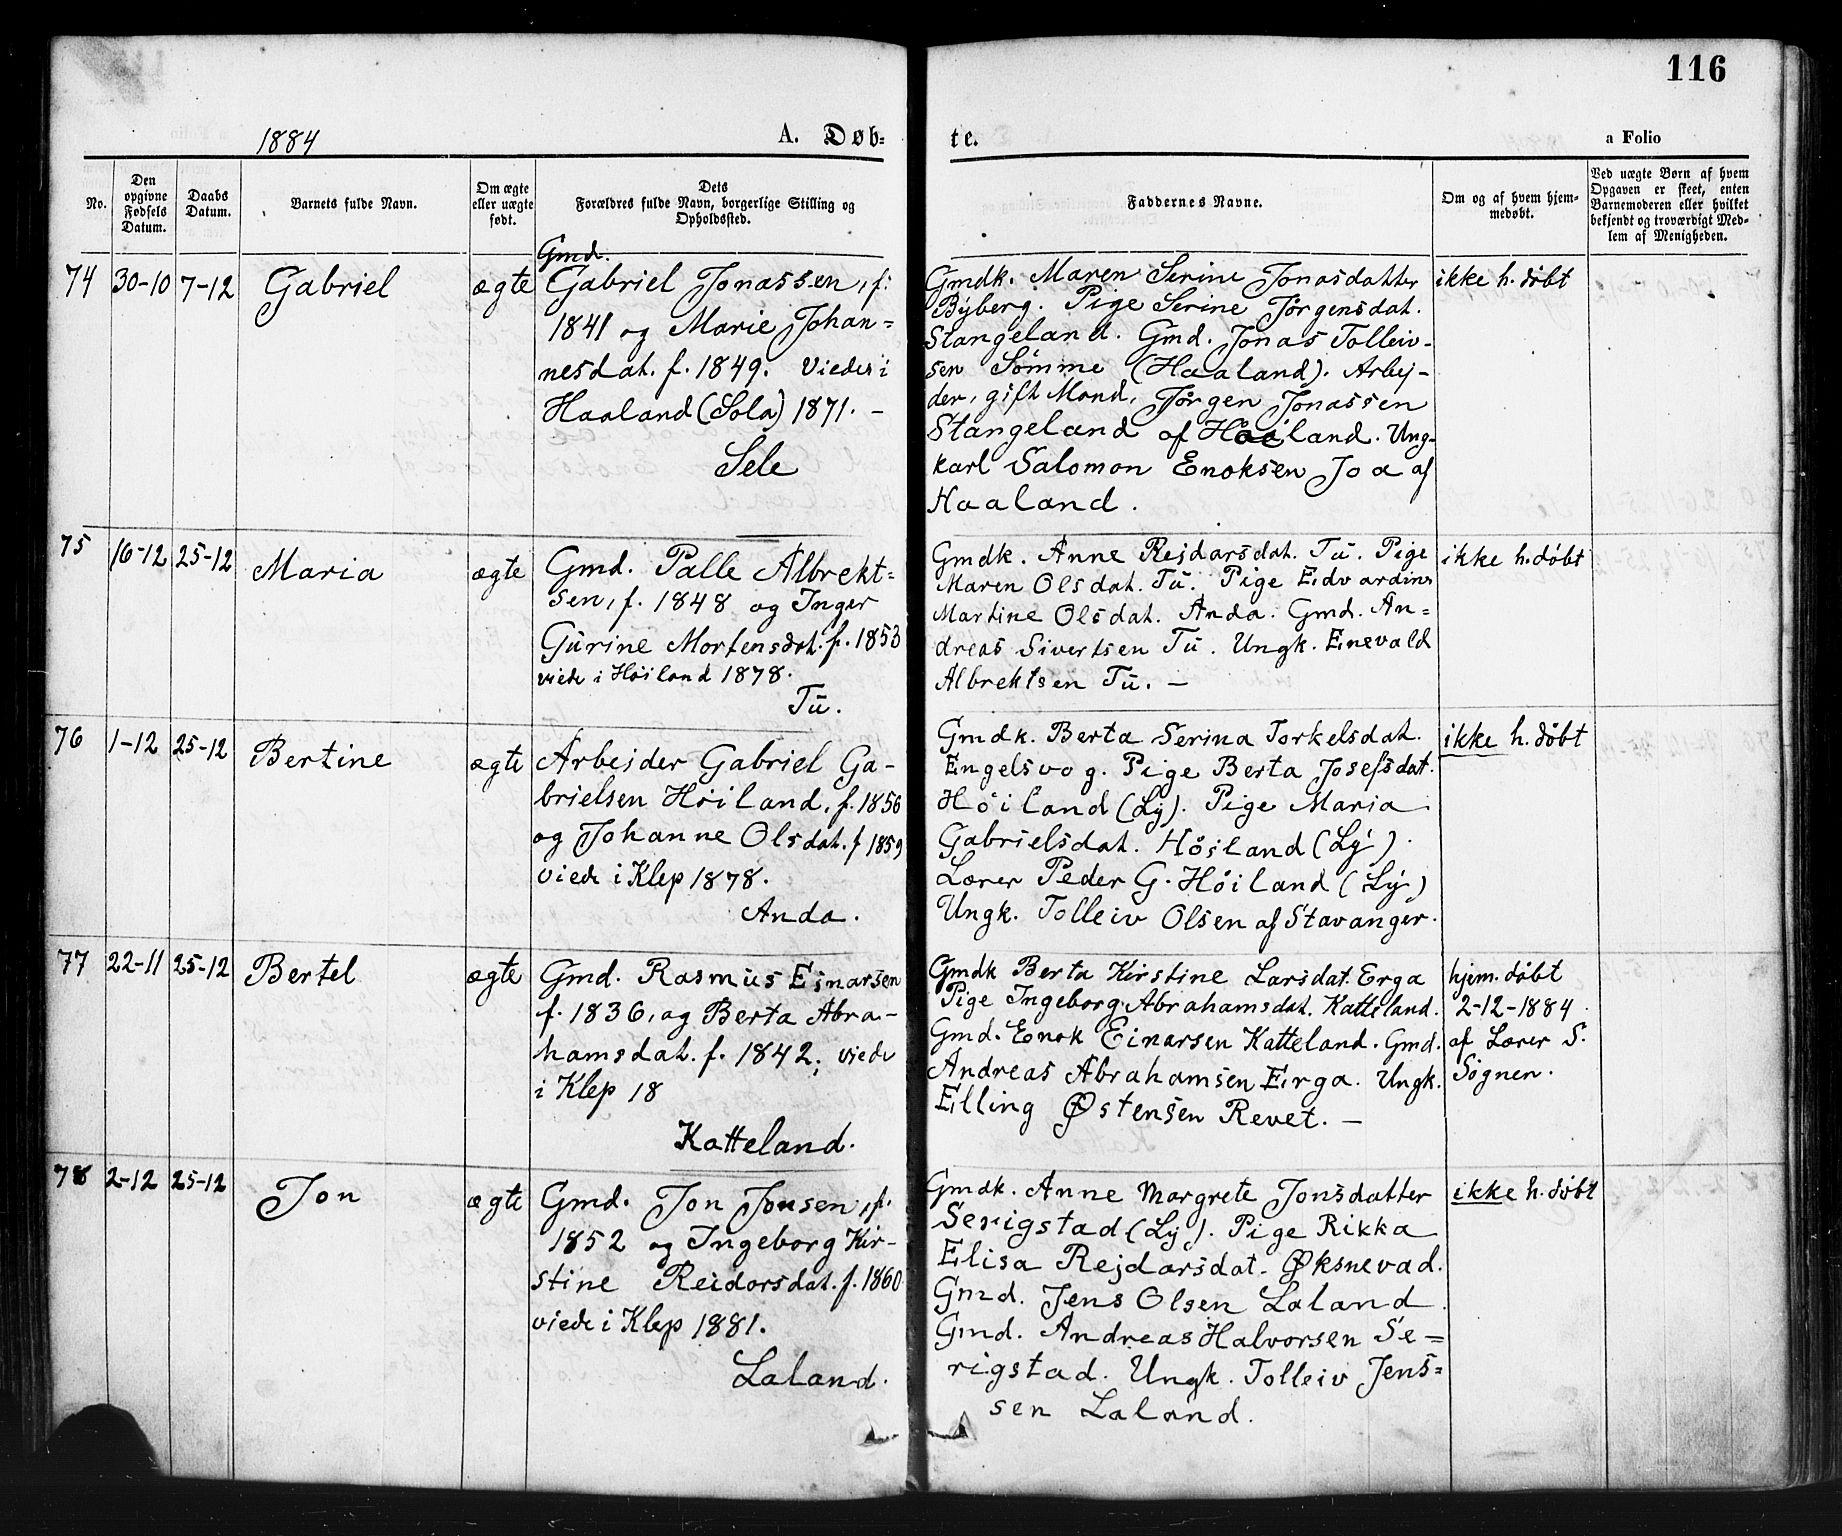 116
1884
A. Døb-
te.
a Folio
No.
Den
opgivne
Fødsels
Datum.
Daabs
Datum.
Barnets fulde Navn.
Om ægte
eller uægte
født.
Dets
Forældres fulde Navn, borgerlige Stilling og
Opholdssted.
Faddernes Navne.
Om og af hvem hjem-
medøbt.
Ved uægte Børn af hvem
Opgaven er skeet, enten
Barnemoderen eller hvilket
bekjendt og troværdigt Med-
lem af Menigheden.
74
30-10
7-12
Gabriel
ægte
Gmd.
Gabriel Jonassen, f.
1841 og Marie Johan=
nesdat. f. 1849. Viedes i
Haaland (Sola) 1871. -
Sele
Gmdk. Maren Serine Jonasdatter
Byberg. Pige Serine Jørgensdat.
Stangeland. Gmd. Jonas Tolleiv-
sen Sømme (Haaland). Arbej-
der, gift Mand, Jørgen Jonassen
Stangeland af Haaland. Ung-
karl Salomon Enoksen Joa af
Haaland.
ikke h. døbt
75
16-12
25-12
Maria
ægte
Gmd. Palle Albrekt=
sen, f. 1848 og Inger
Gurine Mortensdat. f. 1853
viede i Høiland 1878.
Tu.
Gmdk. Anne Rejdarsdat. Tu. Pige
Maren Olsdat. Tu. Pige Edvardine
Martine Olsdat. Anda. Gmd. An=
dreas Sivertsen Tu. Ungk. Enevald
Albrektsen Tu. -
ikke h. døbt
76
1-12
25-12
Bertine
ægte
Arbejder Gabriel Ga-
brielsen Høiland, f. 1856
og Johanne Olsdat. f 1859
viede i Klep 1878.
Anda.
Gmdk. Berta Serina Torkelsdat.
Engelsvog. Pige Berta Josefsdat.
Høiland (Ly). Pige Maria
Gabrielsdat. Høiland (Ly).
Lærer Peder G. Høiland (Ly)
Ungk. Tolleiv Olsen af Stavanger.
ikke h. døbt
77
22-11
25-12
Bertel
ægte
Gmd. Rasmus Einarsen
f. 1836, og Berta Abra-
hamsdat. f. 1842, viede
i Klep 18
Katteland.
Gmdk Berta Kirstine Larsdat. Erga
Pige Ingeborg Abrahamsdat. Katteland.
Gmd. Enok Einarsen Katteland. Gmd.
Andreas Abrahamsen Erga. Ungk.
Elling Østensen Revet. -
hjem. døbt
2-12-1884
af Lærer S.
Sognen.
78
2-12
25-12
Jon
ægte
Gmd. Jon Jonsen, f.
1852 og Ingeborg Kir-
stine Reidarsdat. f. 1860
viede i Klep 1881.
Laland.
Gmdk. Anne Margrete Jonsdatter
Serigstad (Ly). Pige Rikka
Elisa Rejdarsdat. Øksnevad.
Gmd. Jens Olsen Laland
Gmd. Andreas Halvorsen Se=
rigstad. Ungk. Tolleiv Jens=
sen Laland.
ikke h. døbt